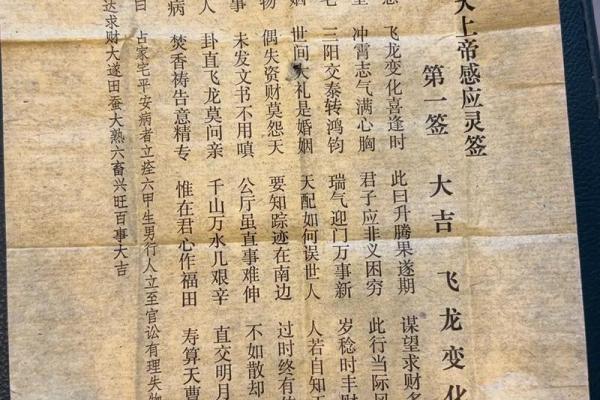 天上帝感应灵签
第一签 大吉 飞龙变化
飞龙变化喜逢时 此日升腾果遂期 谋望求财
冲霄志气满心胸 君子应非义困穷 此行当际
三阳交泰转鸿钧 瑞气迎门万事新 岁稔时丰财
姻 世间大礼是婚姻 天配如何误世人 人若自知
物 偶失资财莫怨天 要知踪迹在南边 过时终有
事 未发文书不用嗔 公厅虽直事难伸 不如散却
人 卦直飞龙莫问亲 千山万水几艰辛 直交明月
病 焚香祷告意精专 惟在君心作福田 寿算天曹
曰 占家宅平安病者立痊六甲生男行人立至官讼有理失物
达求财大遂田蚕大熟六畜兴旺百事大吉